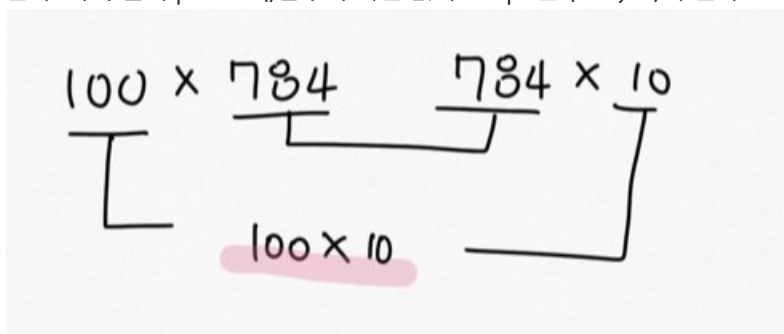 100 × 784 784 × 10
100 × 10